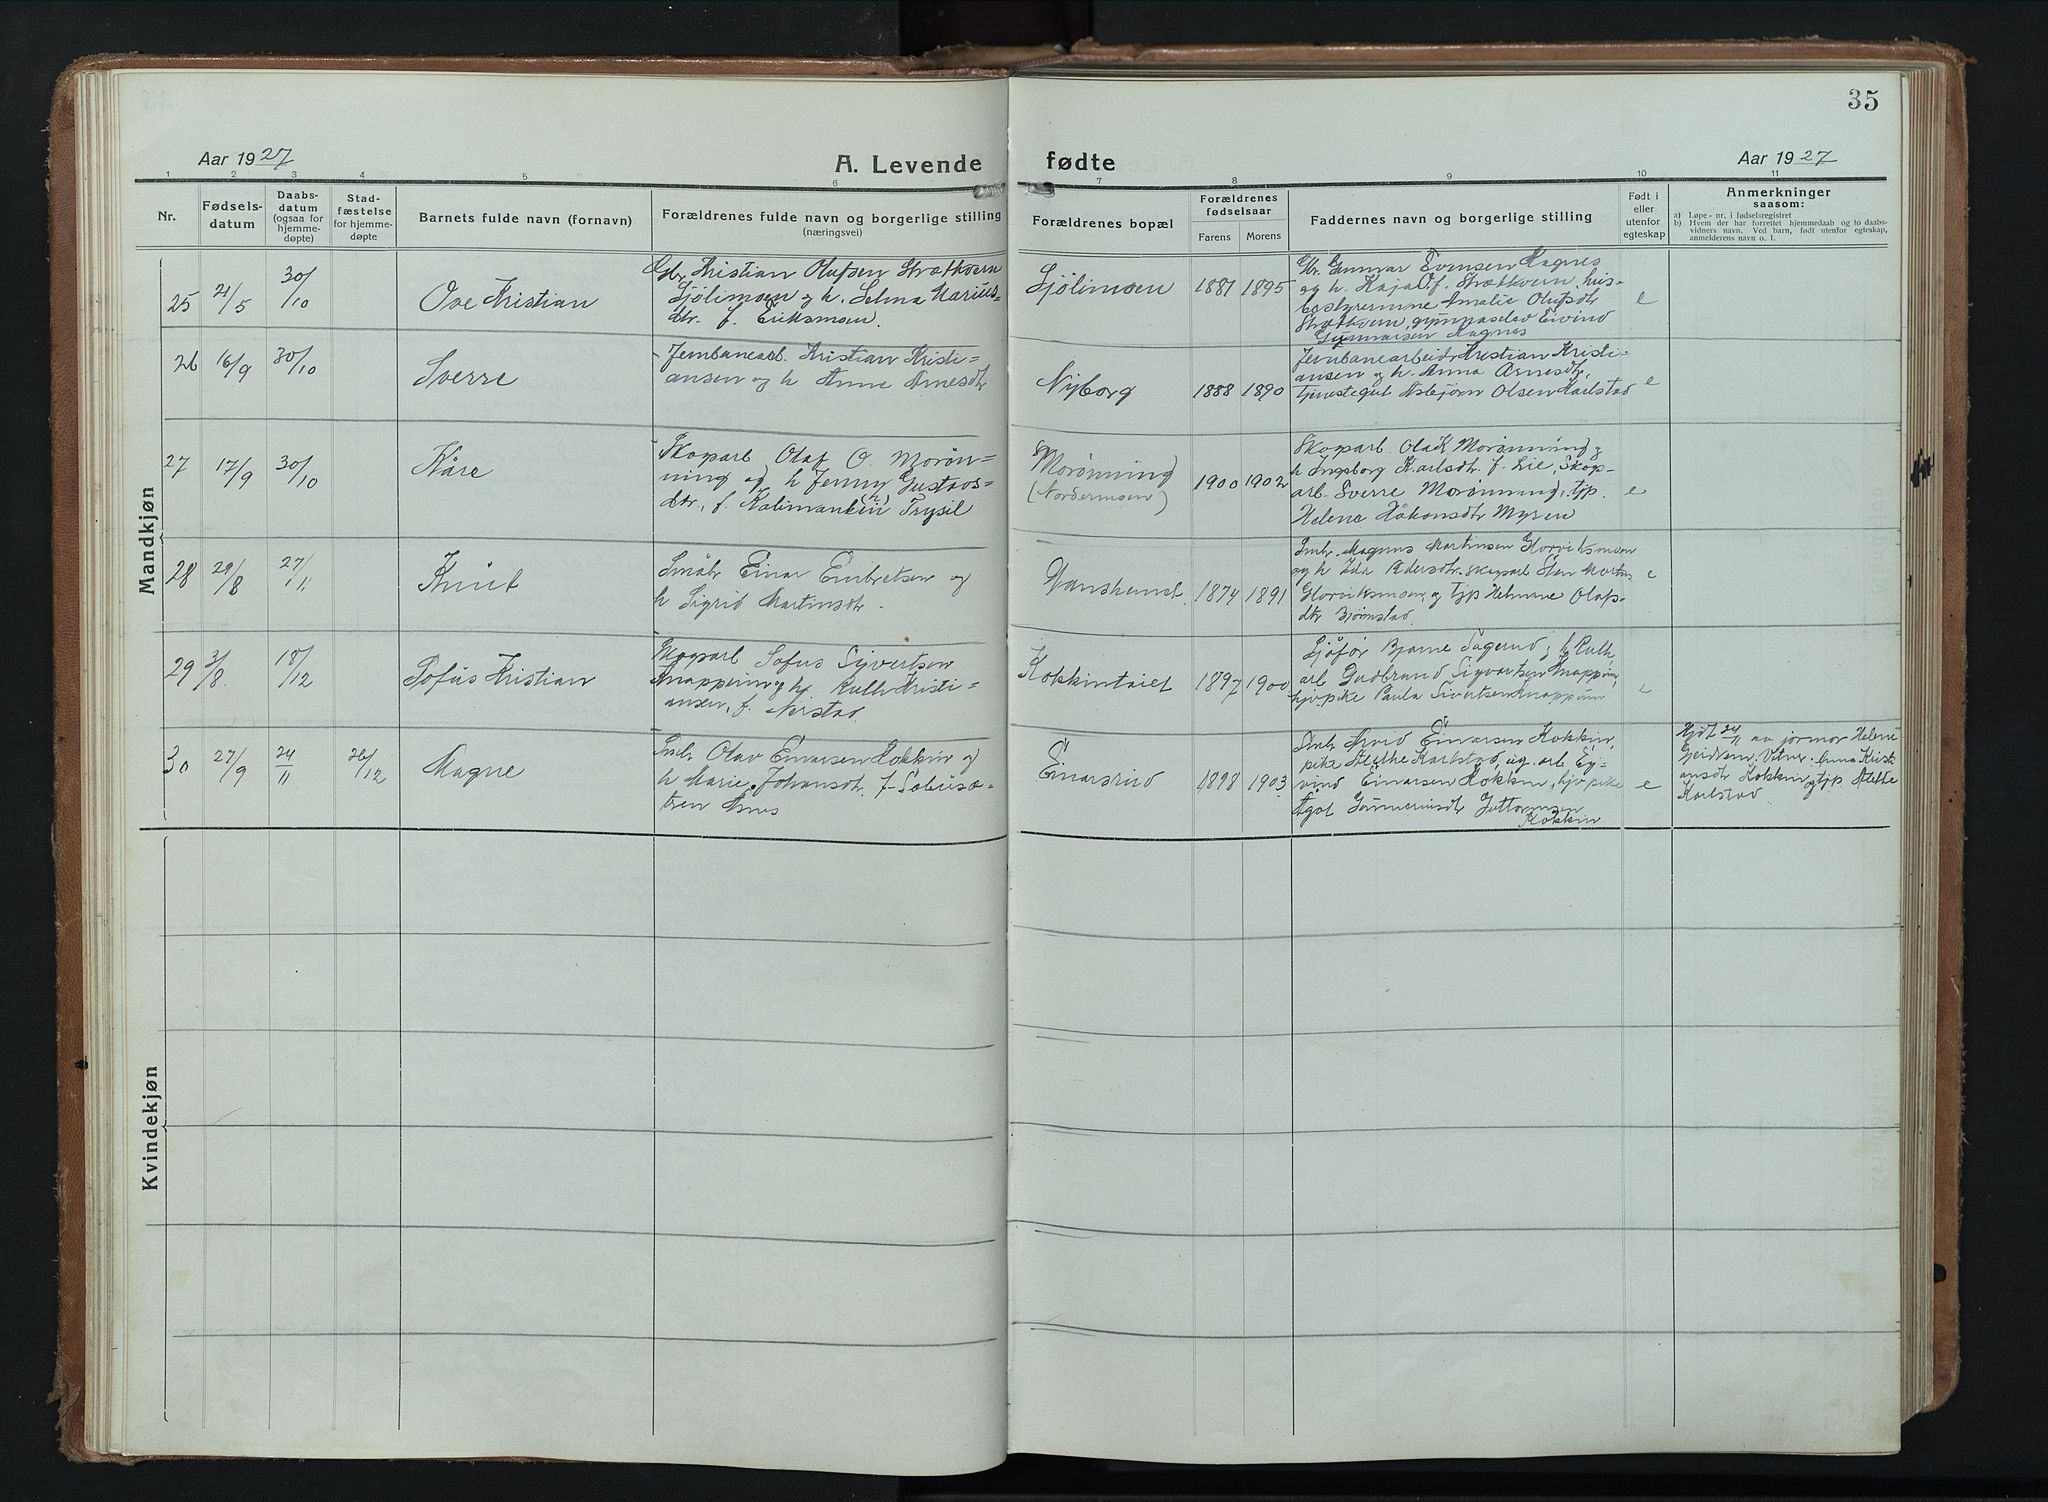 35
Aar 1927
A. Levende fødte
Aar 1927
1 2 3 4 5 6 7 8 9 10 11
Nr.
Fødsels-
datum
Daabs-
datum
(ogsaa for
hjemme-
døpte)
Stad-
fæstelse
for hjemme-
døpte
Barnets fulde navn (fornavn)
Forældrenes fulde navn og borgerlige stilling
(næringsvei)
Forældrenes bopæl
Forældrenes
fødselsaar
Farens
Morens
Faddernes navn og borgerlige stilling
Født i
eller
utenfor
egteskap
Anmerkninger
saasom:
a) Løpe-nr. i fødselsregistret
b) Hvem der har forrettet hjemmedaab og to daabs-
vidners navn. Ved barn, født utenfor egteskap,
anmelderens navn o. l.
Mandkjøn
25
21/5
30/10
Ove Kristian
Gbr Kristian Olafsen Strætkvern
Sjølimoen og h. Selma Marius-
dtr. f. Eriksmoen.
Sjölimoen
1881 1895
Gbr. Gunnar Evensen Magnes
og h. Kaja O. f. Strætkvern, hus-
bestyrerinne Amalie Olufsdtr
Strætkvern, gymnaselev Eivind
Gunnarsen Magnes
e
26
16/9
30/10
Sverre
Jernbanearb. Kristian Kristi-
ansen og h Anna Arnesdtr
Nyborg
1888 1890
Jernbanearbeidr Kristian Kristi-
ansen og h. Anna Arnesdtr,
Tjenestegut Asbjørn Olsen Karlstad
e
27
17/9
30/10
Kåre
Skogarb Olaf O. Morön-
ning og h Jenny Gustavs-
dtr, f. Kolimanken(h) Trysil
Morönning
(Nordermoen)
1900 1902
Skogarb. Olaf Morønning og
h Ingeborg Karlsdtr. f. Lie, Skog-
arb. Sverre Morønning, tjp.
Helena Håkonsdtr Myren
e
28
29/8
27/11
Knut
Småbr Einar Embretsen og
h Sigrid Martinsdtr.
1874 1891
Smbr. Magnus Martinsen Glorviksmoen
og h Ida Pedersdtr. skogarb Sten Martins
Glorviksmoen, og Tjp Helmine Olaf-
dtr Bjørnstad.
e
29
3/8
18/12
Sofus Kristian
Skogarb Sofus Syvertsen
Knappum og h. Ruth Kristi-
ansen, f. Nerstad.
Kokkintaiet
1897 1900
Sjåfør Bjarne Sagerud, h Ruth,
arb Gudbrand Sigvartsen Knappum,
hjv pike Paula Sivertsen Knappum
e
30
27/9
24/11
26/12
Magne
Smbr Olav Einarsen Kokkin og
h Marie Johansdtr. f. Solusæ-
tren Åsnes
Einarsrud
1898 1903
Smbr Arvid Einarsen Kokkin,
pike Alethe Karlstad, ug. arb Ey-
vind Einarsen Kokkin, hjv pike
Ågot Gunneriusdtr Guttormsen
Kokkin
e
Hjd 24/11 av jormor Helene
Vitner. Anna Kristi
ansdtr Kokkin og tjp Alethe
Karlstad
Kvindekjøn